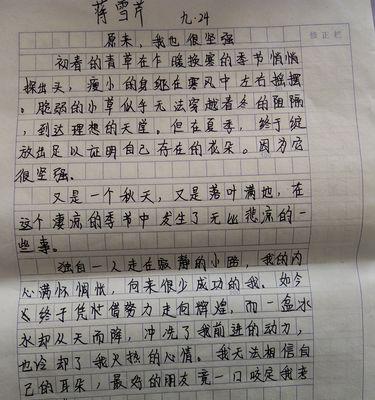 蒋雪芹 九.24
原来，我也很坚强
修正栏
初春的青草在乍暖换寒的季节悄悄
探出头，瘦小的身躯在寒风中左右摇摆
。脆弱的小草似乎无法穿越着冬的阻隔
，到达理想的天堂。但在夏季，终于绽
放出足以证明自己存在的花朵。因为它
很坚强。
又是一个秋天，又是落叶满地，在
这个凄凉的季节中发生了无比悲凉的一
些事。
独自一人走在寂静的小路，我的内
心满怀惆怅，向来很少成功的我。如今
终于凭忙借努力走向辉煌，而一盆冰
水却从天而降，冲洗了我前进的动力，
也冷却了我火热的心情。我无法相信自
己的耳朵，最好的朋友竟一口咬定我考